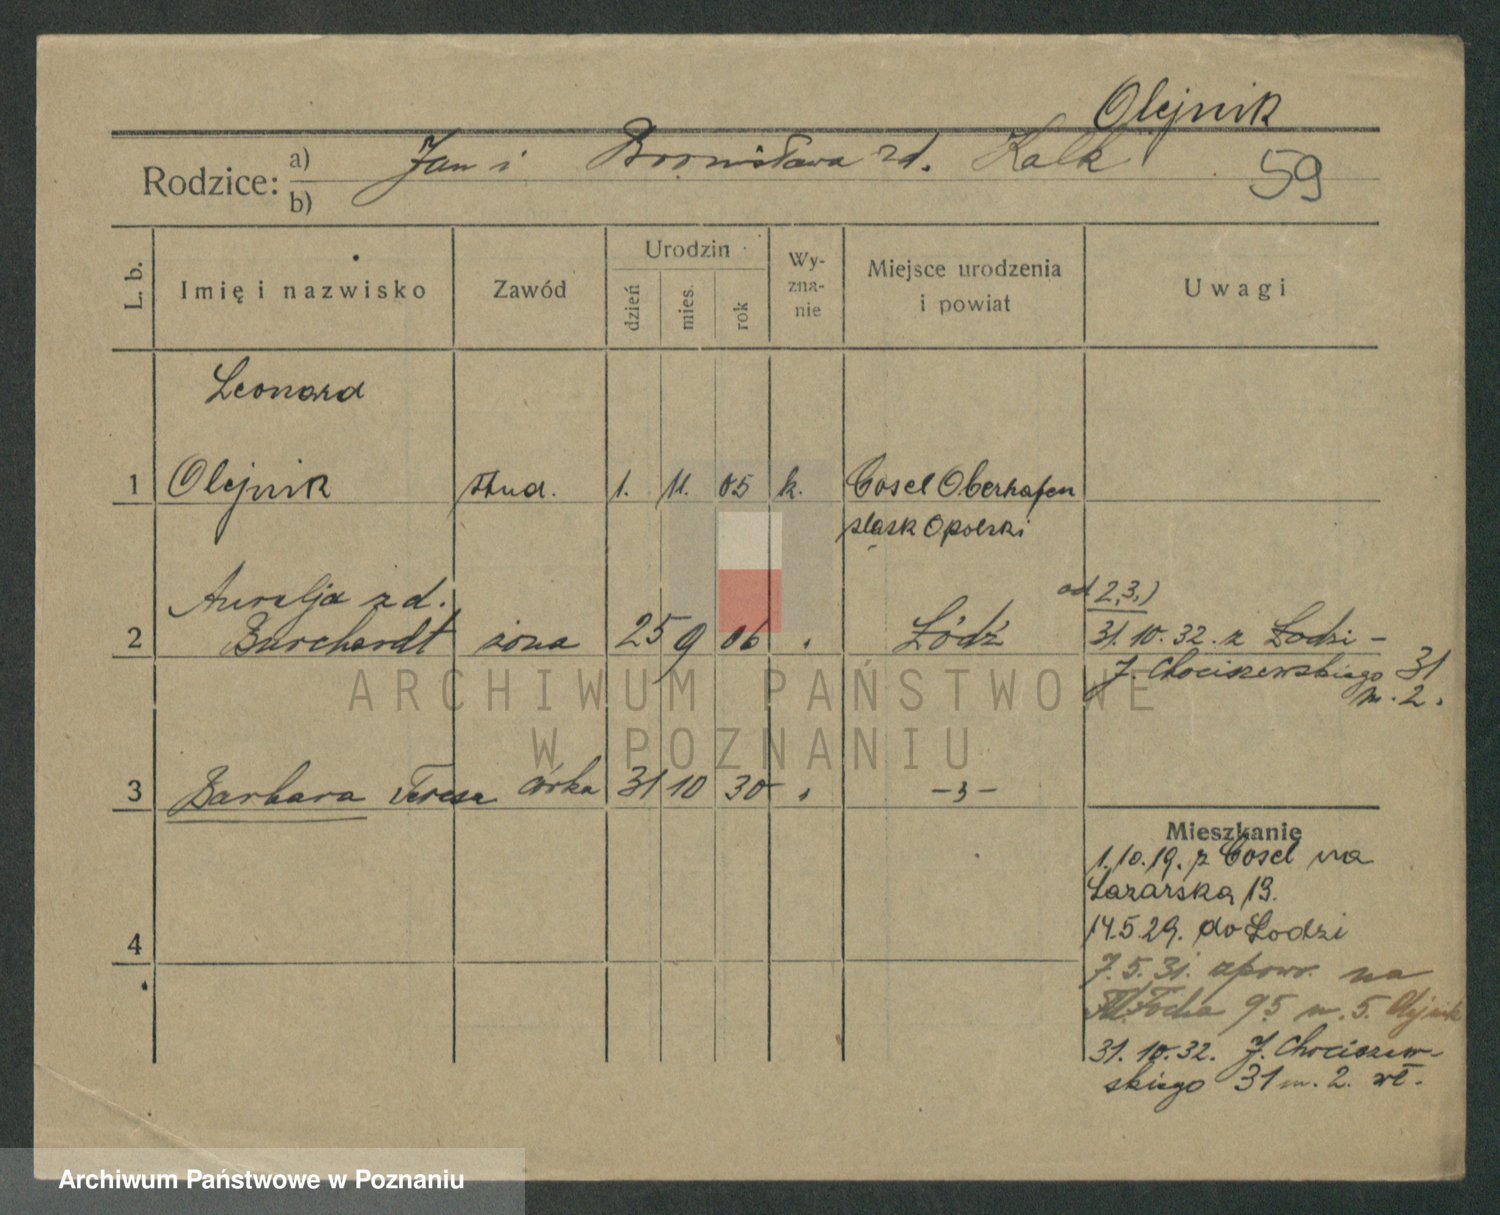 Olejnik
Rodzice: a) Jan i Bronisława zd. Kalk
b)
59
L. b.
Imię i nazwisko
Zawód
Urodzin
dzień
mies.
rok
Wy-
zna-
nie
Miejsce urodzenia
i powiat
Uwagi
Leonard
1 Olejnik stud. 1. 11. 05 k. Cosel Oberhafen
śląsk Opolski
Aurelja zd. od 2,3,)
2 Burchardt żona 25 9 06 " Łódź 31.10.32. z Łodzi -
J. Chociszewskiego 31
m. 2.
3 Barbara Teresa córka 31 10 30 " -"-
Mieszkanie
1.10.19. z Cosel na
Łazarską 13.
4 14.5.29. do Łodzi
7.5.31. zpowr. na
M. Focha 95 m. 5. Olejnik
31.10.32. J. Chociszew-
skiego 31 m. 2. wł.
ARCHIWUM PAŃSTWOWE
W POZNANIU
Archiwum Państwowe w Poznaniu